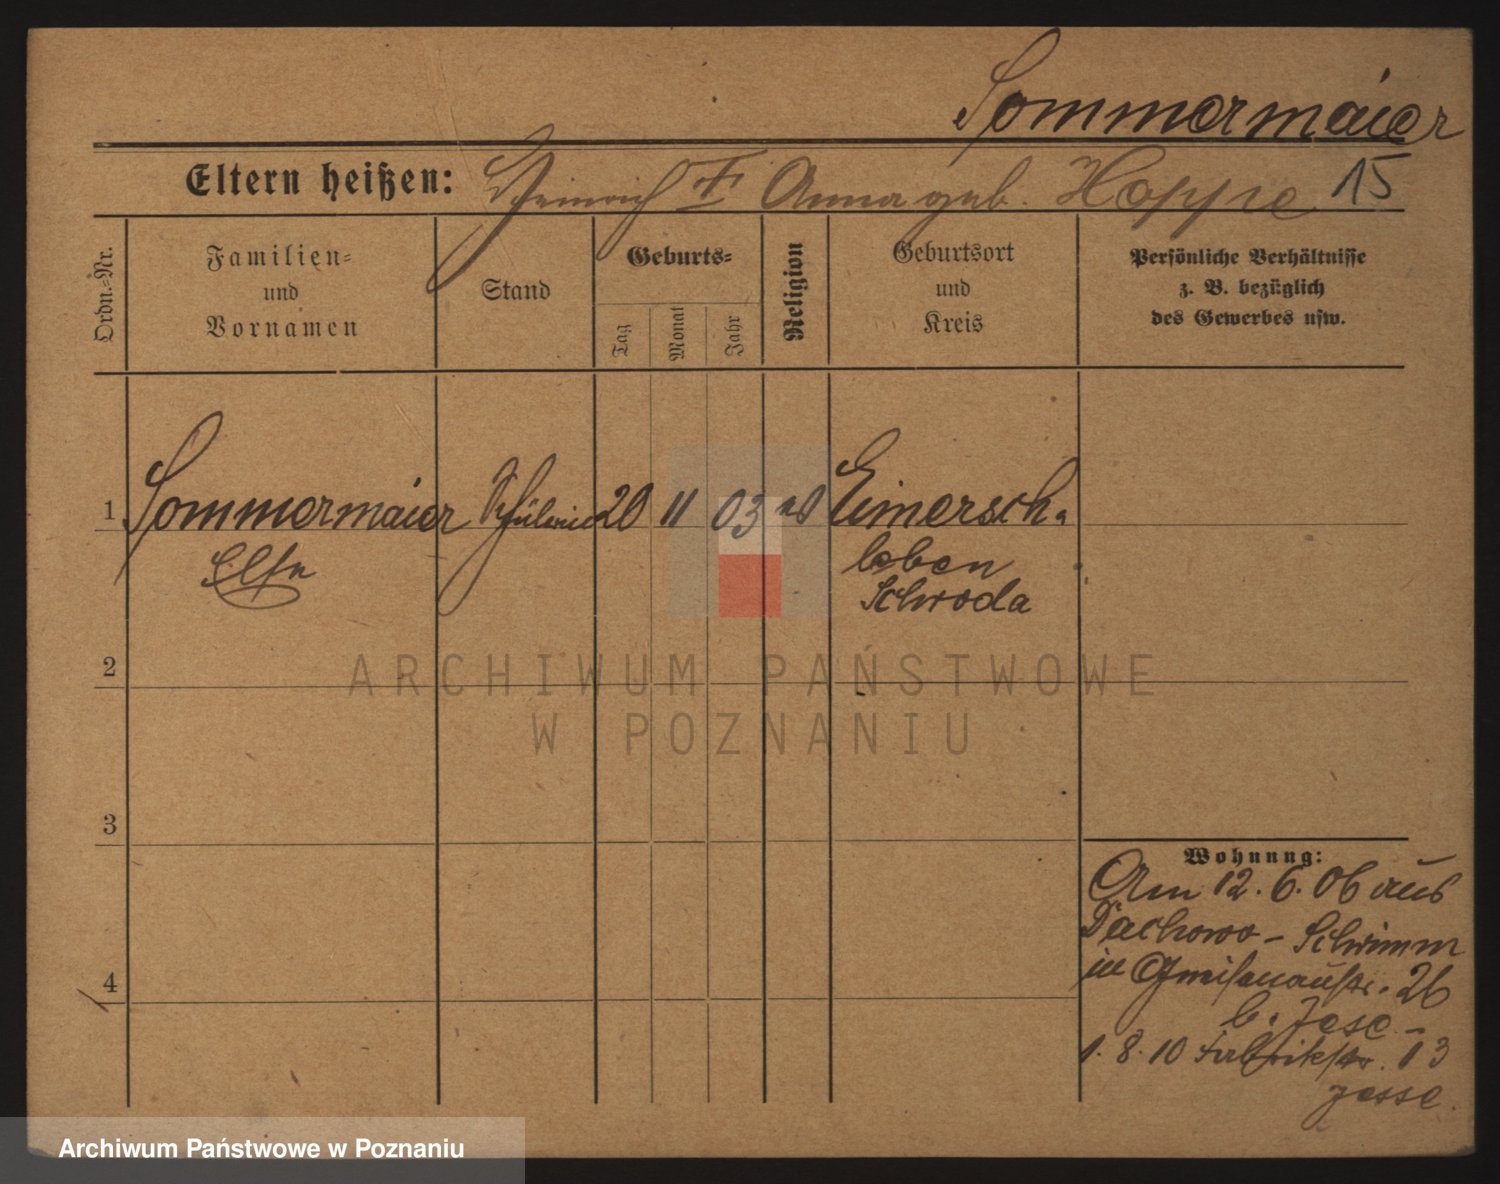 Sommermaier
Eltern heißen: Heinrich † Anna geb. Hoppe 15
Ordn.-Nr.
Familien- und Vornamen
Stand
Geburts-
Tag
Monat
Jahr
Religion
Geburtsort und Kreis
Persönliche Verhältnisse
z. B. bezüglich
des Gewerbes usw.
1 Sommermaier Schülerin 20 11 03 Eimersch-
Else
leben
Schroda
2
3
4
Wohnung:
Am 12. 6. 06 aus
Dachowo - Schrimm
in Gneisenaustr. 26
b. Jese -
1. 8. 10 Fabrikstr. 13
Jesse
ARCHIWUM PAŃSTWOWE
W POZNANIU
Archiwum Państwowe w Poznaniu